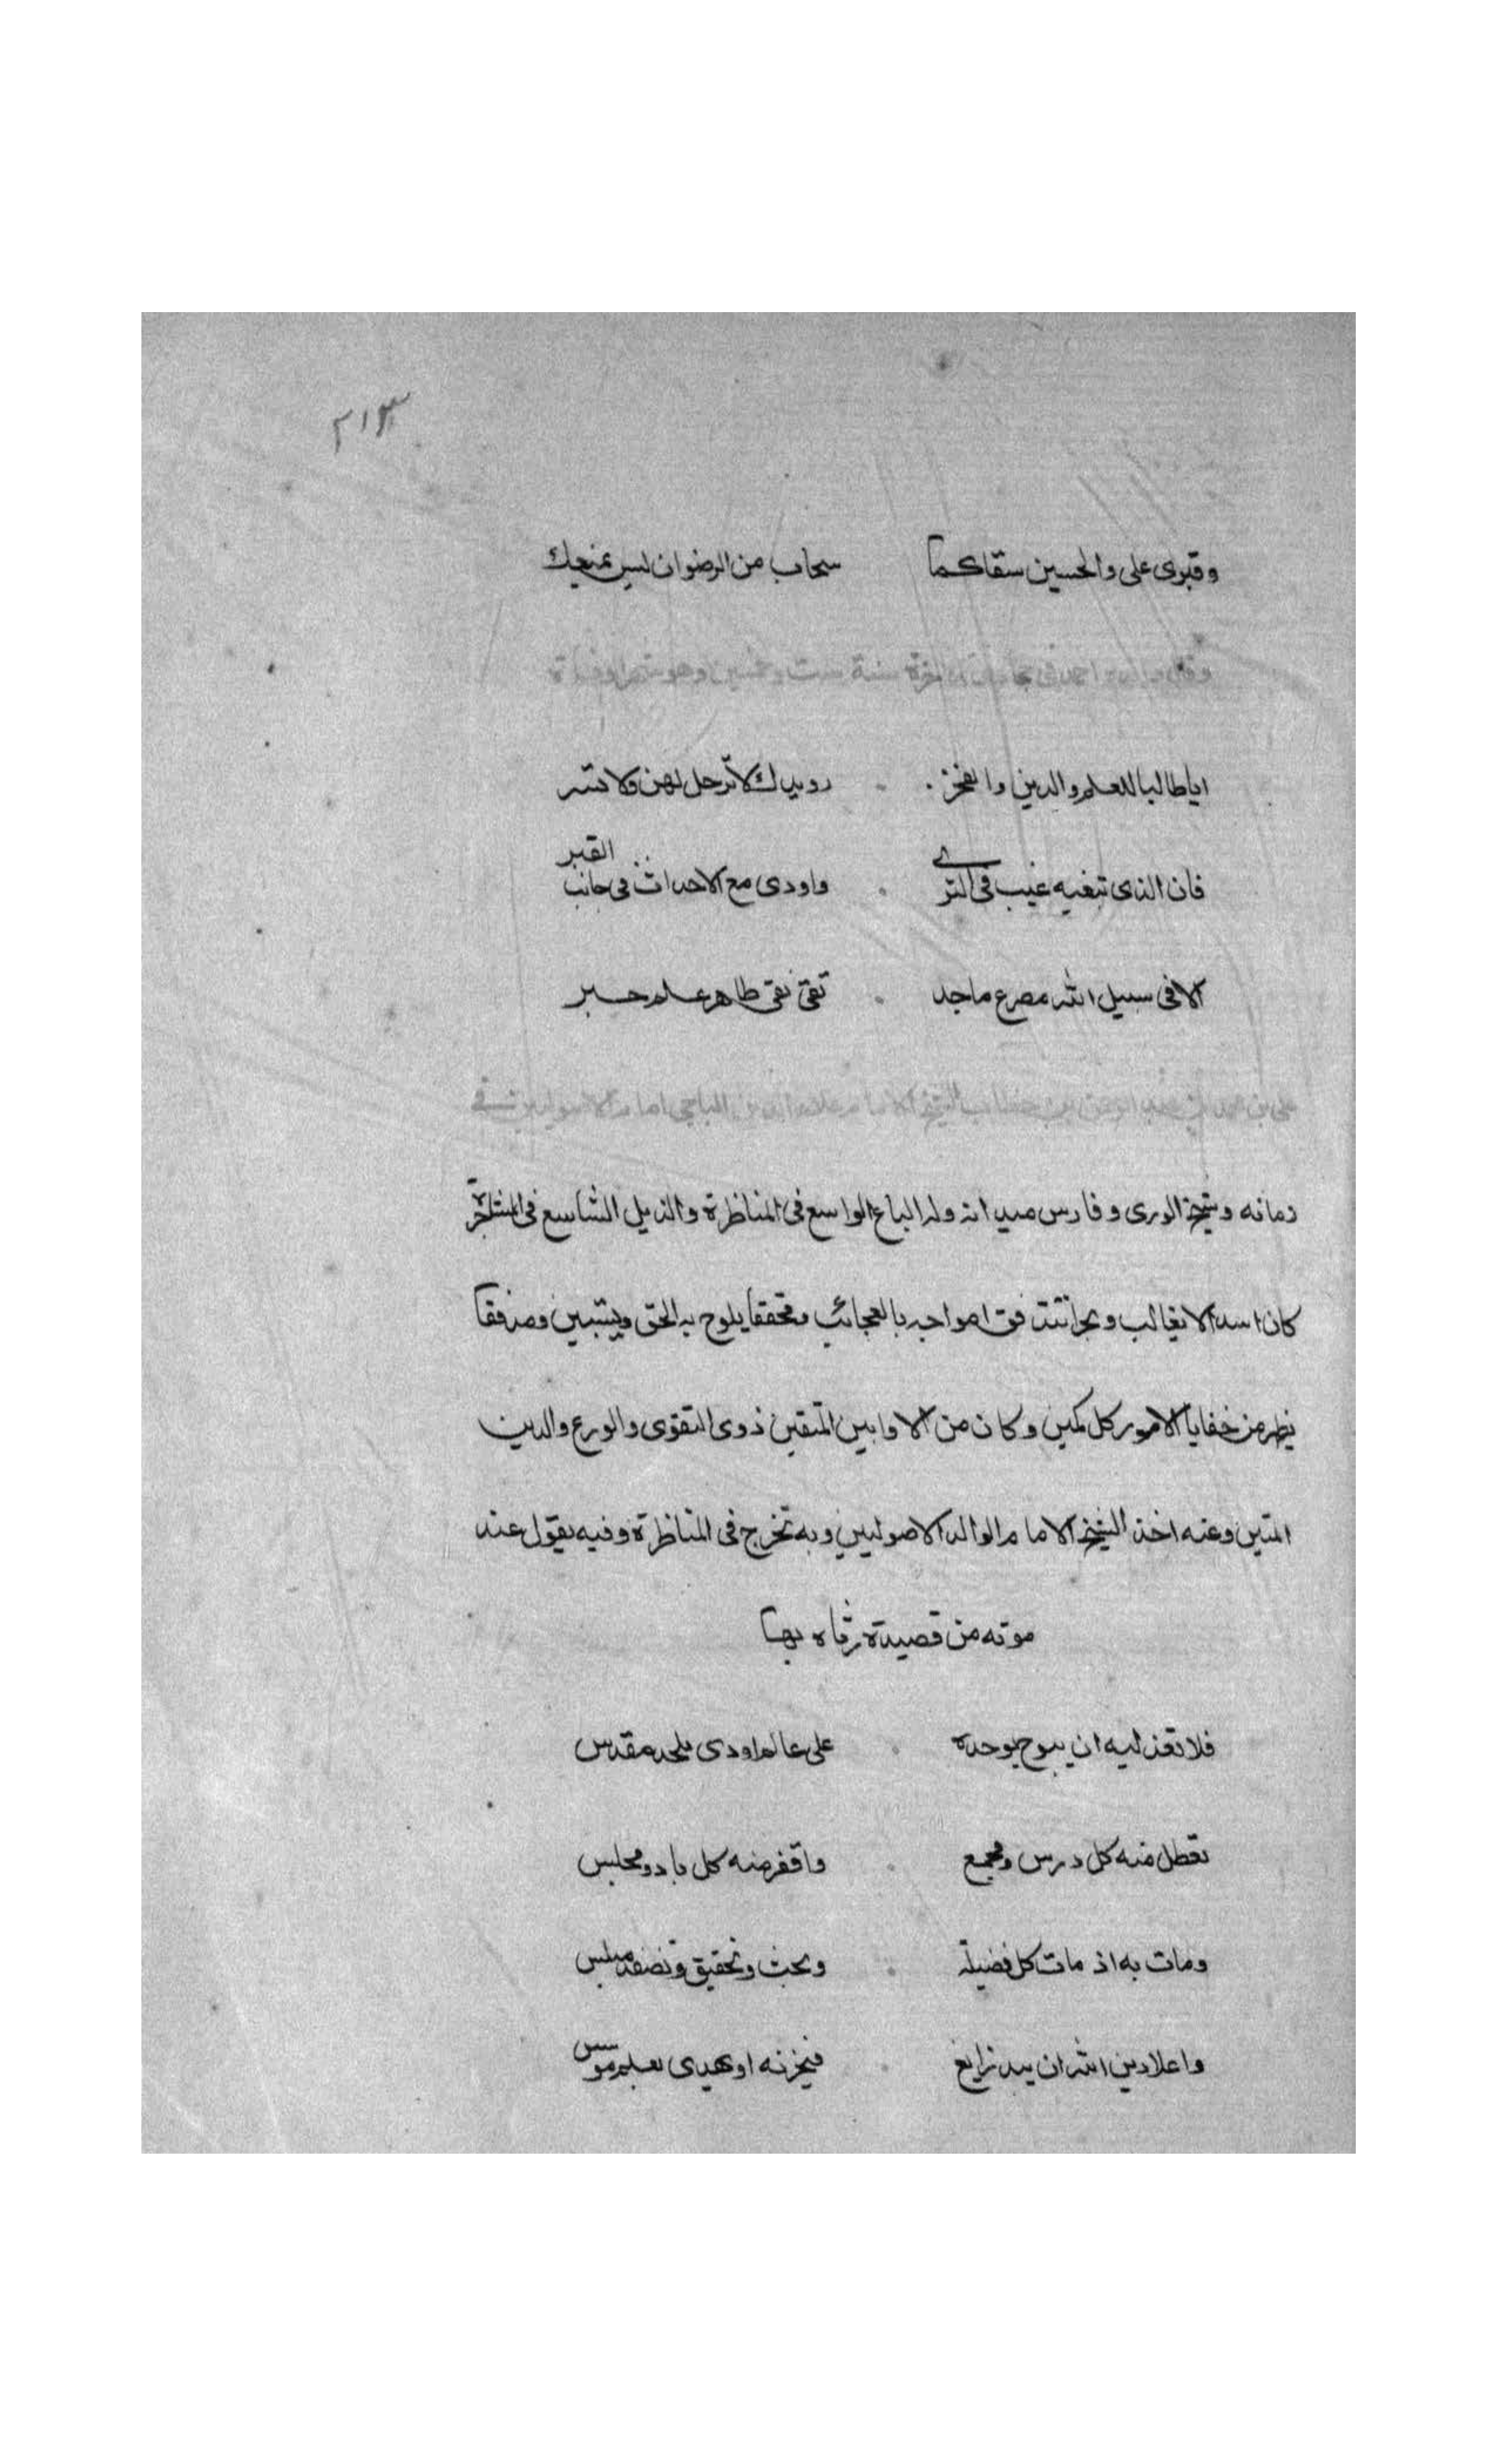 ٢١٣
وقبرى على والحسين سقاكما سحاب من الرضوان ليس بمنجلك
وقال احمد فى سنة ست وخمسين وهو
اياطالبا للعلم والدين والفخر رويدك لا ترحل لهن ولا تسر
فان الذى تبغيه غيب فى الثرى واودى مع الاحداث فى جانب القبر
الا فى سبيل الله مصرع ماجد تقى نقى طاهر علم حبر
على بن محمد بن عبد الرحمن بن خطاب الشيخ الامام علاء الدين الباجى امام الاصوليين فى
زمانه وشيخ الورى وفارس ميدانه وله الباع الواسع فى المناظرة والذيل الشاسع فى المشاجرة
كان اسدا لا يغالب وبحرا تتدفق امواجه بالعجائب ومحققا يلوح به الحق ويستبين ومدققا
يظهر من خفايا الامور كل كمين وكان من الاوابين المتقين ذوى التقوى والورع والدين
المتين وعنه اخذ الشيخ الامام الوالد الاصوليين وبه تخرج فى المناظرة وفيه يقول عند
موته من قصيدة رثاه بها
فلا تعذليه ان يبوح بوجده على عالم اودى بلحد مقدس
تعطل منه كل درس ومجمع واقفر منه كل ناد ومجلس
ومات به اذ مات كل فضيلة وبحث وتحقيق وتصفيد مبلس
واعلا دين الله ان يبد زايغ فيخزنه او يهدى بعلم موسس